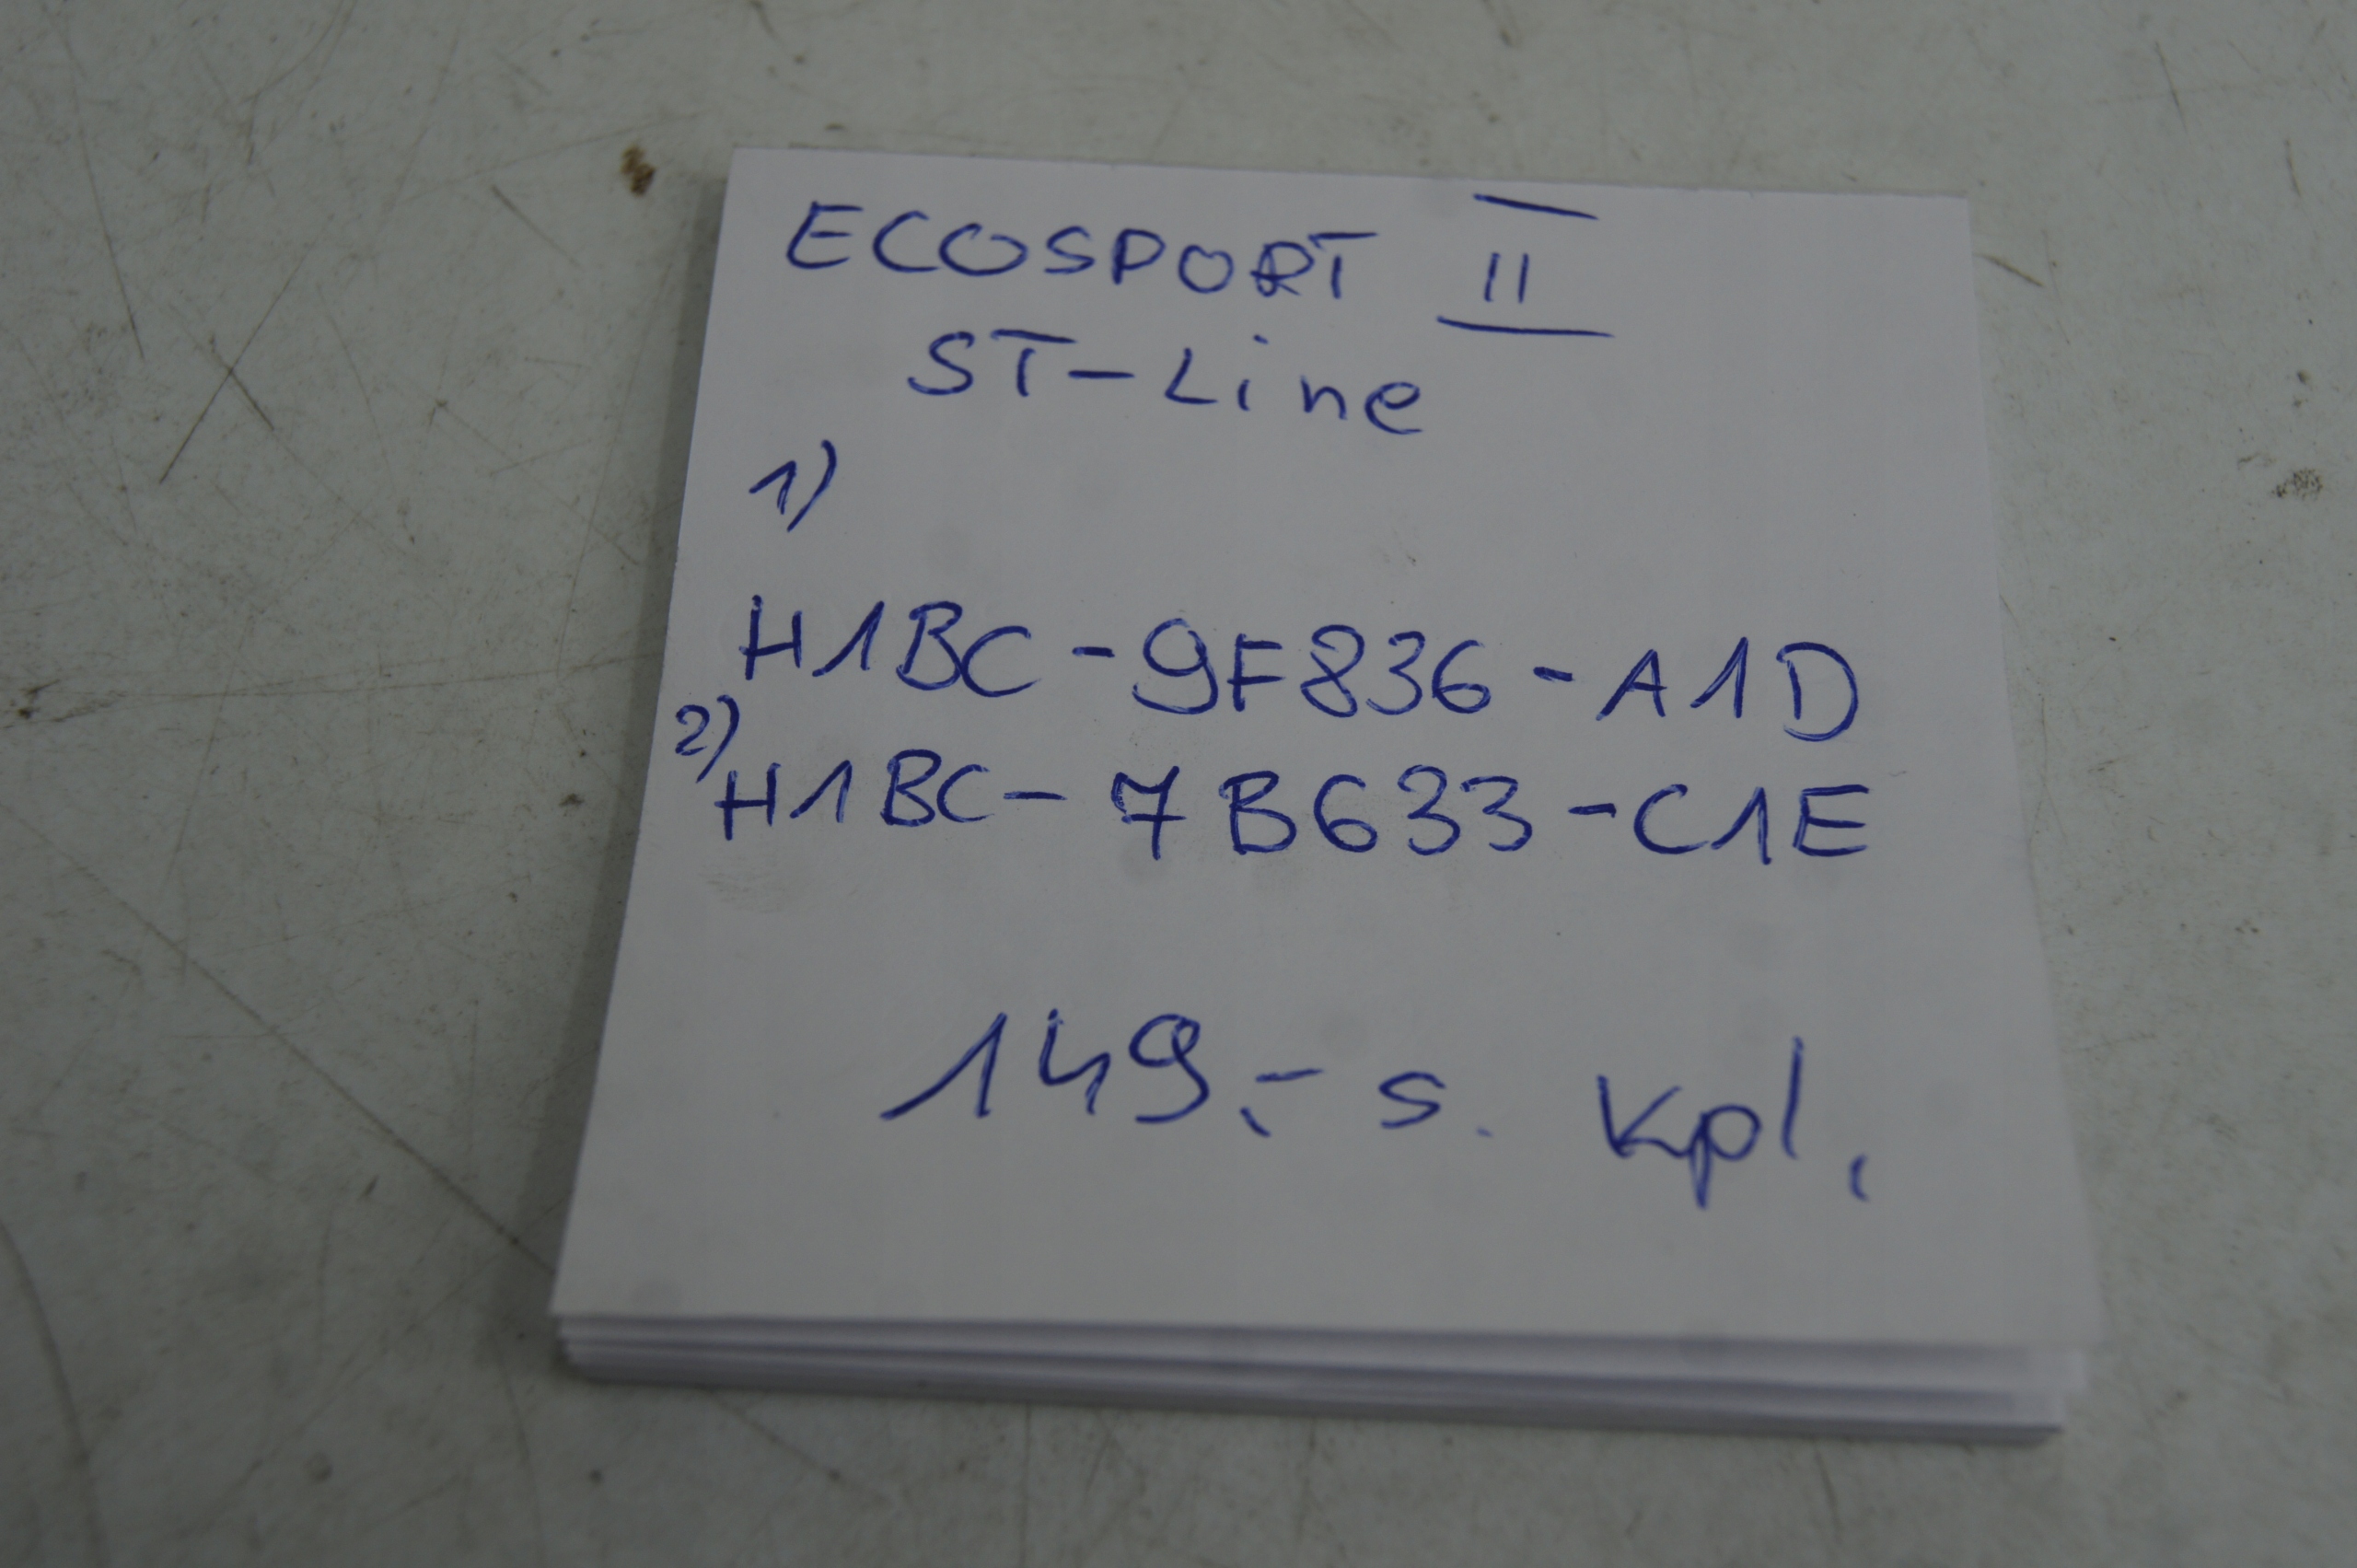 ECOSPORT II
ST-Line
1)
H1BC-9F836-A1D
2)
H1BC-7B633-C1E
149,- s. kpl.